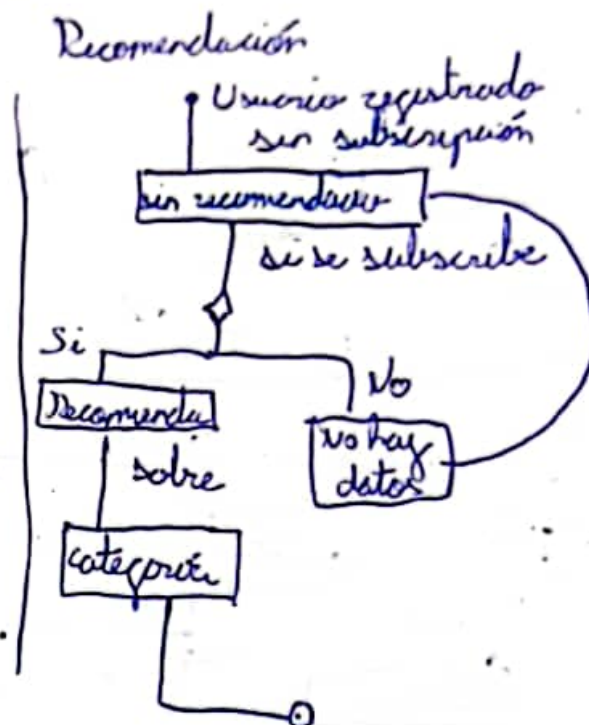 Recomendación
Usuario registrado
sin subscripción
sin recomendación
si se subscribe
Si
No
Recomienda
No hay
datos
sobre
categoría